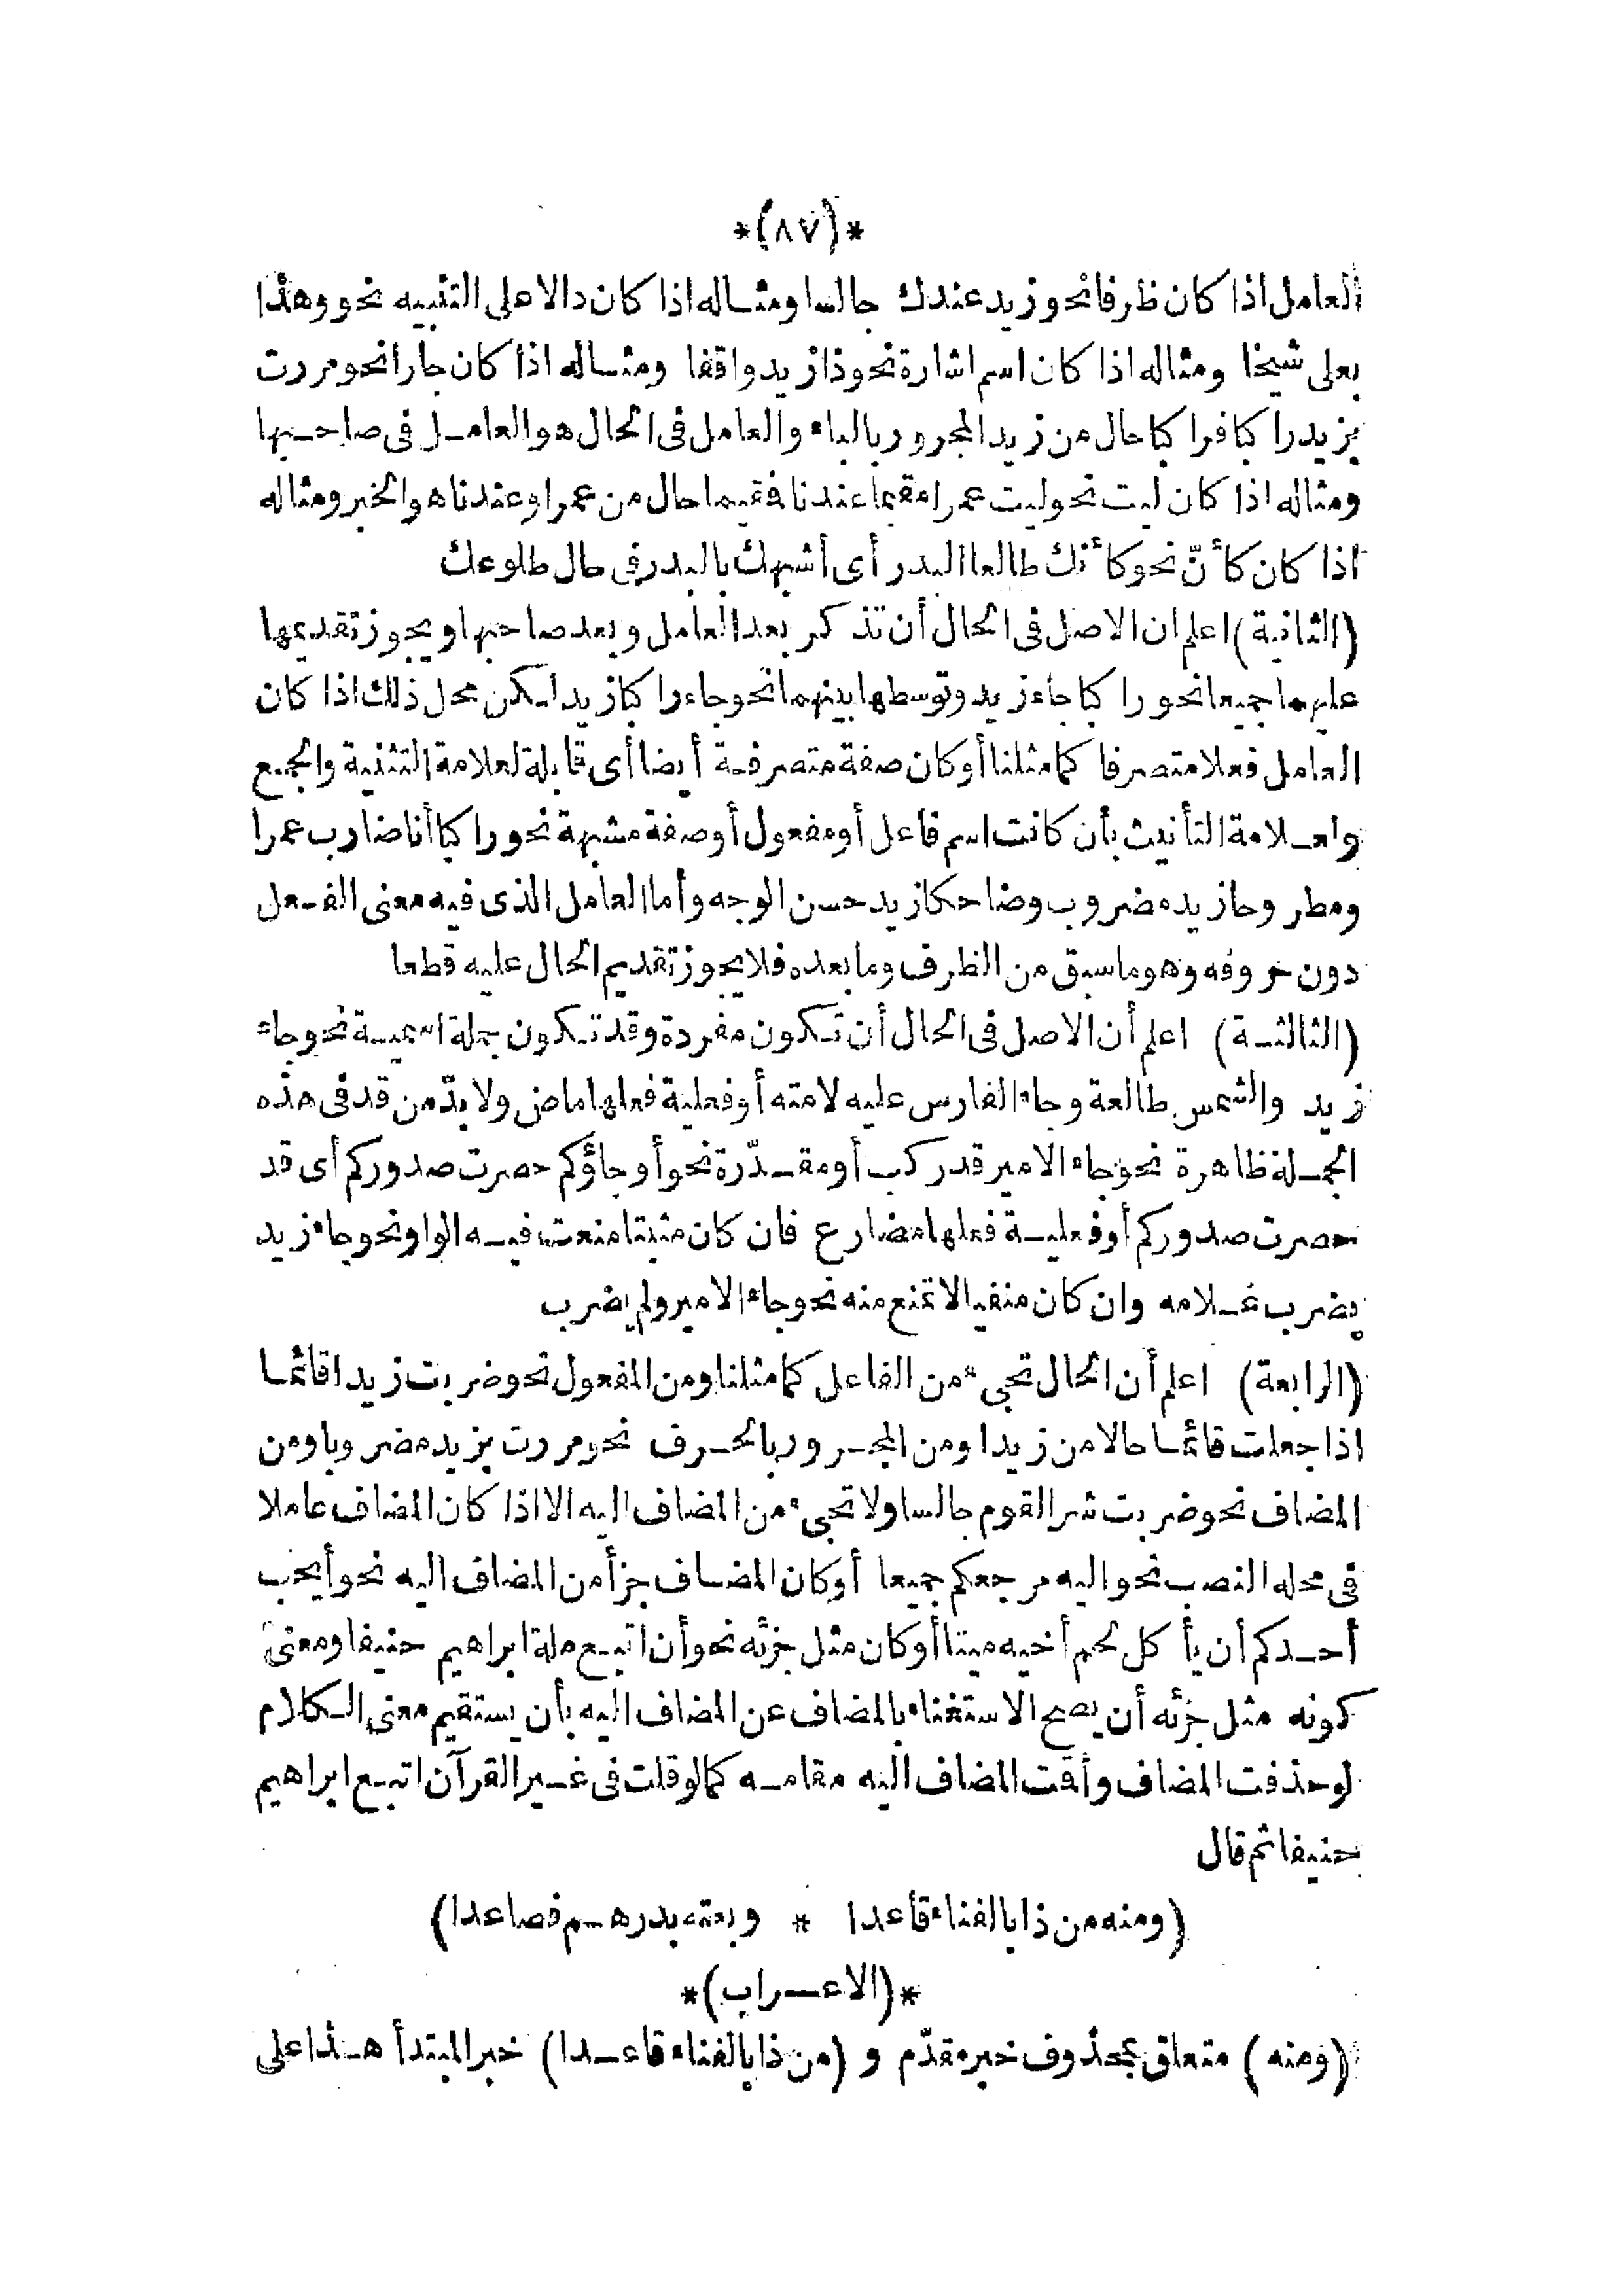 *(٨٧)*
العامل اذا كان ظرفا نحو زيد عندك جالسا ومثاله اذا كان دالا على التنبيه نحو وهذا
بعلى شيخا ومثاله اذا كان اسم اشارة نحو ذا زيد واقفا ومثاله اذا كان جارا نحو مررت
بزيد راكبا فراكبا حال من زيد المجرور بالباء والعامل فى الحال هو العامل فى صاحبها
ومثاله اذا كان ليت نحو ليت عمرا مقيما عندنا فمقيما حال من عمرا وعندنا هو الخبر ومثاله
اذا كان كأنّ نحو كأنك طالعا البدر أى أشبهك بالبدر فى حال طلوعك
(الثانية) اعلم ان الاصل فى الحال أن تذكر بعد العامل وبعد صاحبها ويجوز تقديمها
عليهما جميعا نحو راكبا جاء زيد وتوسطها بينهما نحو جاء راكبا زيد لكن محل ذلك اذا كان
العامل فعلا متصرفا كما مثلنا أو كان صفة متصرفة أيضا أى قابلة لعلامة التثنية والجمع
ولعلامة التأنيث بأن كانت اسم فاعل أو مفعول أو صفة مشبهة نحو راكبا أنا ضارب عمرا
ومطروحا زيد مضروب وضاحكا زيد حسن الوجه وأما العامل الذى فيه معنى الفعل
دون حروفه وهو ما سبق من الظرف وما بعده فلا يجوز تقديم الحال عليه قطعا
(الثالثة) اعلم أن الاصل فى الحال أن تكون مفردة وقد تكون جملة اسمية نحو جاء
زيد والشمس طالعة وجاء الفارس عليه لامته أو فعلية فعلها ماض ولا بدّ من قد فى هذه
الجملة ظاهرة نحو جاء الامير قد ركب أو مقدّرة نحو أو جاؤكم حصرت صدورهم أى قد
حصرت صدوركم أو فعلية فعلها مضارع فان كان مثبتا منعت فيه الواو نحو جاء زيد
يضرب غلامه وان كان منفيا لا تمتنع منه نحو جاء الامير ولم يضرب
(الرابعة) اعلم أن الحال تجىء من الفاعل كما مثلنا ومن المفعول نحو ضربت زيدا قائما
اذا جعلت قائما حالا من زيدا ومن المجرور بالحرف نحو مررت بزيد مضروبا ومن
المضاف نحو ضربت شر القوم جالسا ولا تجىء من المضاف اليه الا اذا كان المضاف عاملا
فى محله النصب نحو اليه مرجعكم جميعا أو كان المضاف جزأ من المضاف اليه نحو أيحب
أحدكم أن يأكل لحم أخيه ميتا أو كان مثل جزئه نحو أن اتبع ملة ابراهيم حنيفا ومعنى
كونه مثل جزئه أن يصح الاستغناء بالمضاف عن المضاف اليه بأن يستقيم معنى الكلام
لو حذفت المضاف وأقمت المضاف اليه مقامه كما لو قلت فى غير القرآن اتبع ابراهيم
حنيفا ثم قال
(ومنه من ذا بالفناء قاعدا * وبعته بدرهم فصاعدا)
*(الاعراب)*
(ومنه) متعلق بمحذوف خبر مقدّم و (من ذا بالفناء قاعدا) خبر المبتدأ هذا على